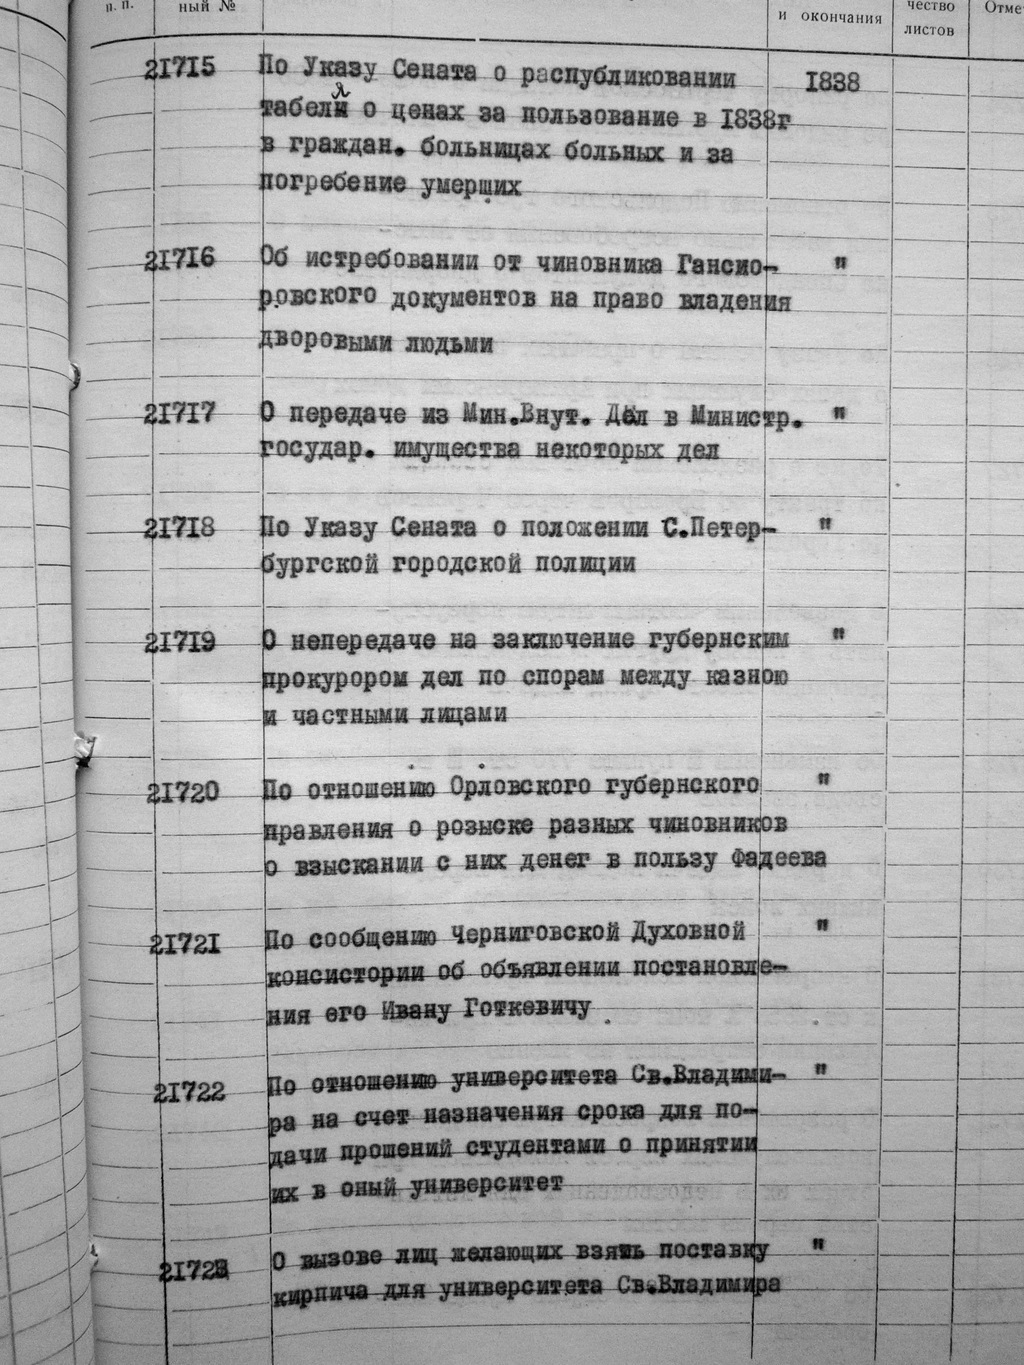 п. п.
ный №
и окончания
чество
листов
Отме
21715 По Указу Сената о распубликовании 1838
я
табели о ценах за пользование в 1838г
в граждан. больницах больных и за
погребение умерщих
21716 Об истребовании от чиновника Гансио- "
ровского документов на право владения
дворовыми людьми
21717 О передаче из Мин.Внут. Дел в Министр. "
государ. имущества некоторых дел
21718 По Указу Сената о положении С.Петер- "
бургской городской полиции
21719 О непередаче на заключение губернским "
прокурором дел по спорам между казною
и частными лицами
21720 По отношению Орловского губернского "
правления о розыске разных чиновников
о взыскании с них денег в пользу Фадеева
21721 По сообщению Черниговской Духовной "
консистории об объявлении постановле-
ния его Ивану Готкевичу
21722 По отношению университета Св.Владими- "
ра на счет назначения срока для по-
дачи прошений студентами о принятии
их в оный университет
21723 О вызове лиц желающих взять поставку "
кирпича для университета Св.Владимира